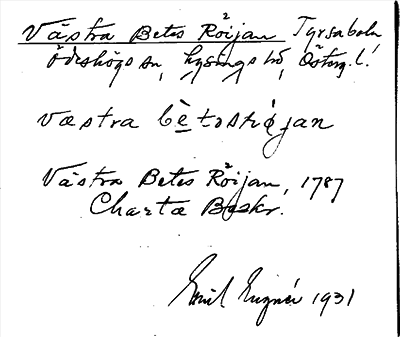 Västra Betes Röijan Tyrsabola
Ödeshögs sn, Lysings hd, Österg. l.
væstra bètɘsrǿjan
Västra Betes Röijan, 1787
Charta Beskr.
Emil Engnér 1931